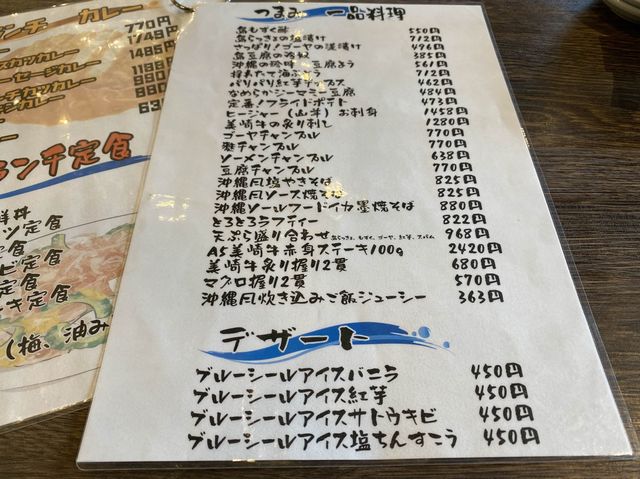 つまみ 一品料理
島もずく酢 550円
島らっきょの塩漬け 712円
さっぱり!ゴーヤの浅漬け 496円
島豆腐の冷奴 385円
沖縄の珍味 豆腐よう 561円
採れたて海ぶどう 712円
パリパリ紅芋チップス 462円
なめらかジーマミー豆腐 484円
定番!フライドポテト 473円
ヒージャー(山羊)お刺身 1458円
美崎牛の炙り刺し 1280円
ゴーヤチャンプル 770円
麩チャンプル 770円
ソーメンチャンプル 638円
豆腐チャンプル 770円
沖縄風塩やきそば 825円
沖縄風ソース焼そば 825円
沖縄ソールフードイカ墨焼そば 880円
とろとろラフティー 822円
天ぷら盛り合わせ 島らっきょ、もずく、ゴーヤ、紅芋、スパム 968円
A5美崎牛赤身ステーキ100g 2420円
美崎牛炙り握り2貫 680円
マグロ握り2貫 570円
沖縄風炊き込みご飯ジューシー 363円
デザート
ブルーシールアイスバニラ 450円
ブルーシールアイス紅芋 450円
ブルーシールアイスサトウキビ 450円
ブルーシールアイス塩ちんすこう 450円
ンチ カレー
770円
スカツカレー
ーセージカレー
チカツカレー
ンチ定食
鮮丼
ツ定食
定食
ビ定食
定食
キ定食
(梅、油み